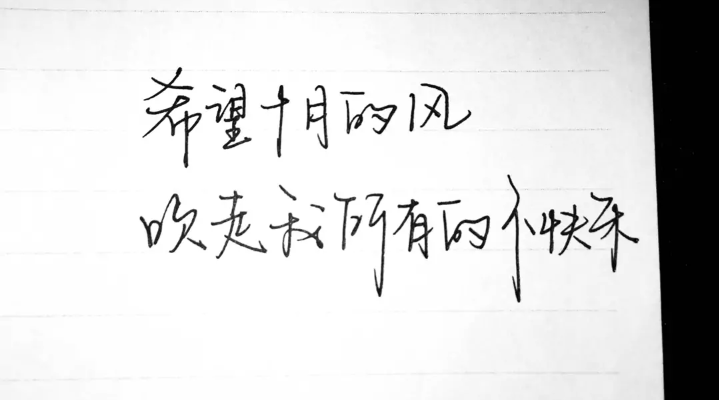 希望十月的风
吹走我所有的不快乐